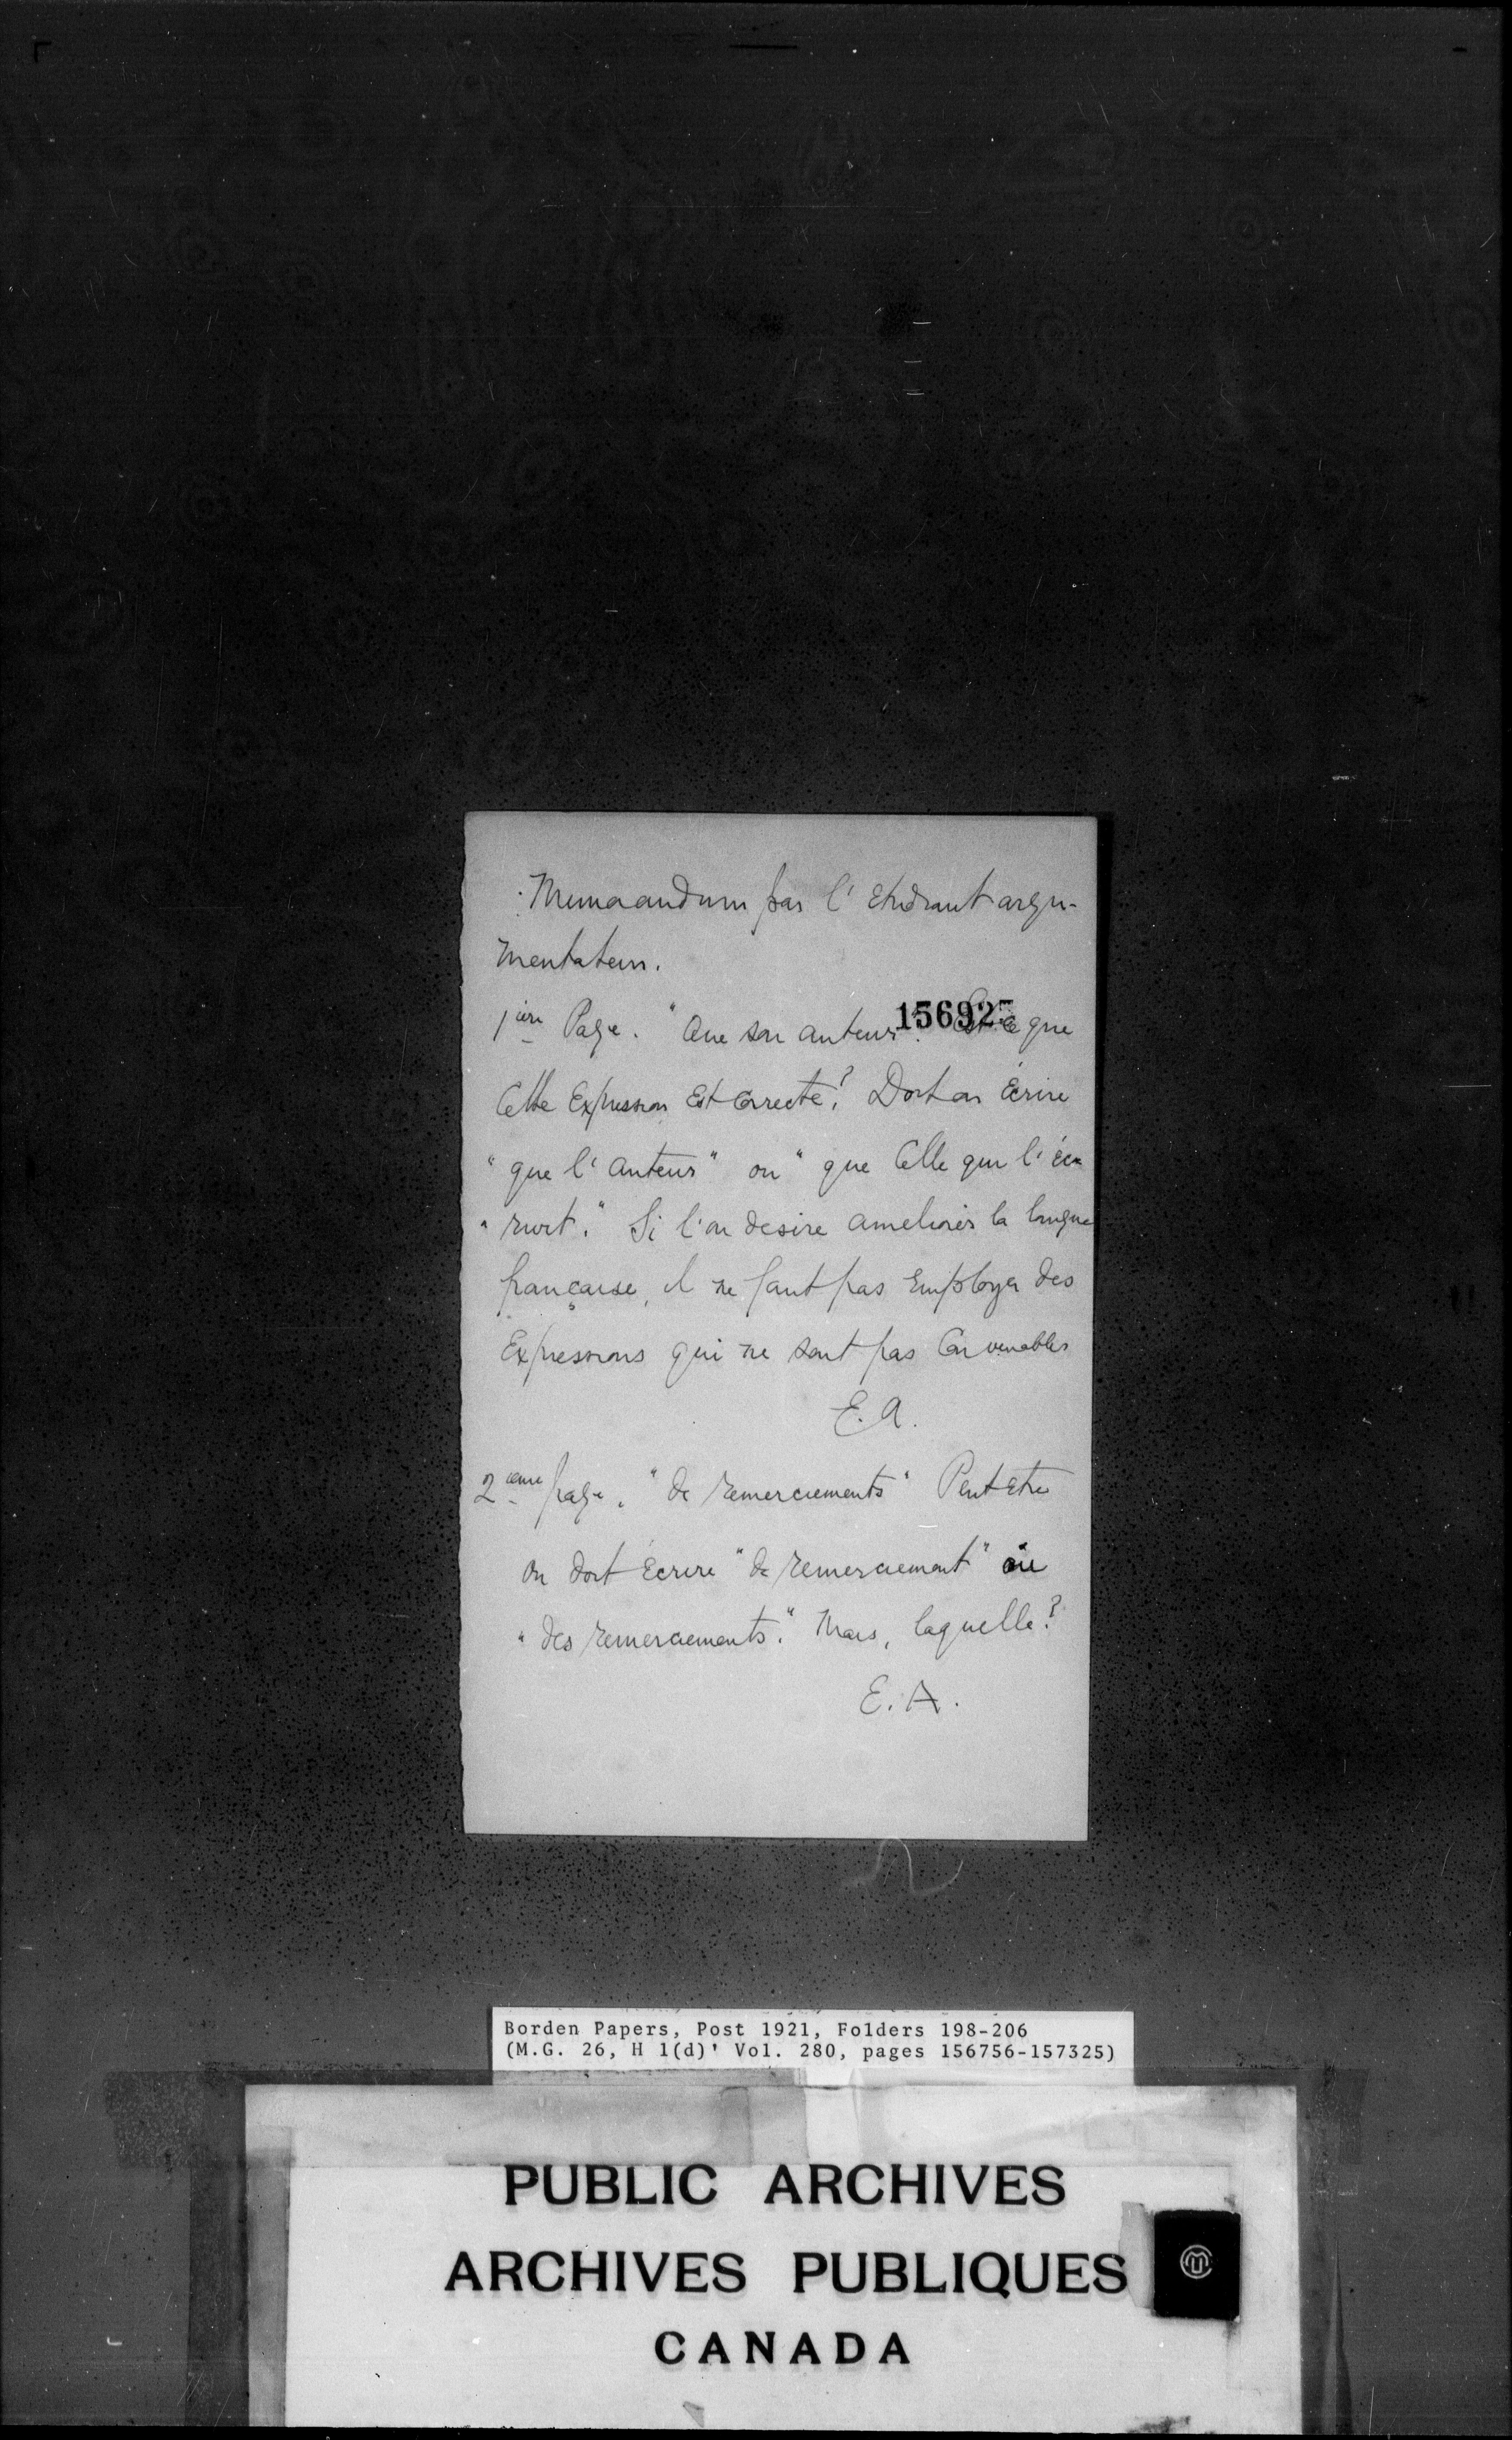 Memorandum par l' etudiant argu-
mentateur.
156925
1ière Page. "Que son auteur". Est ce que
Cette Expression Est Correcte? Doit on Écrire
"que l'auteur" ou "que Celle qui l' écri-
"
Si l'on desire ameliorer la langue
française, il ne faut pas Employer des
Expressions qui ne sont pas Convenables
E. A.
2ième page. "de remerciements" Peut Etre
on doit Écrire "de remerciement" ou
"des remerciements." Mais, laquelle?
E. A.
Borden Papers, Post 1921, Folders 198-206
(M.G. 26, H 1(d)' Vol. 280, pages 156756-157325)
PUBLIC ARCHIVES
ARCHIVES PUBLIQUES
CANADA